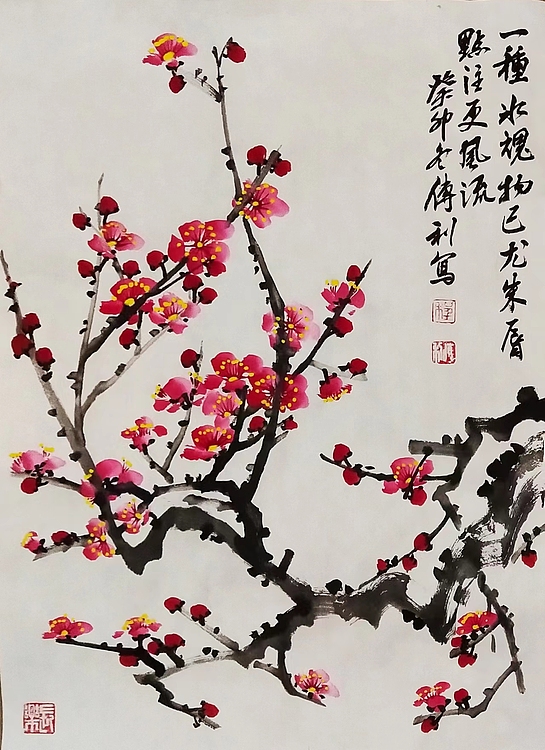 一種冰魂物已尤朱唇
點注更風流
癸卯冬傅利寫
長樂